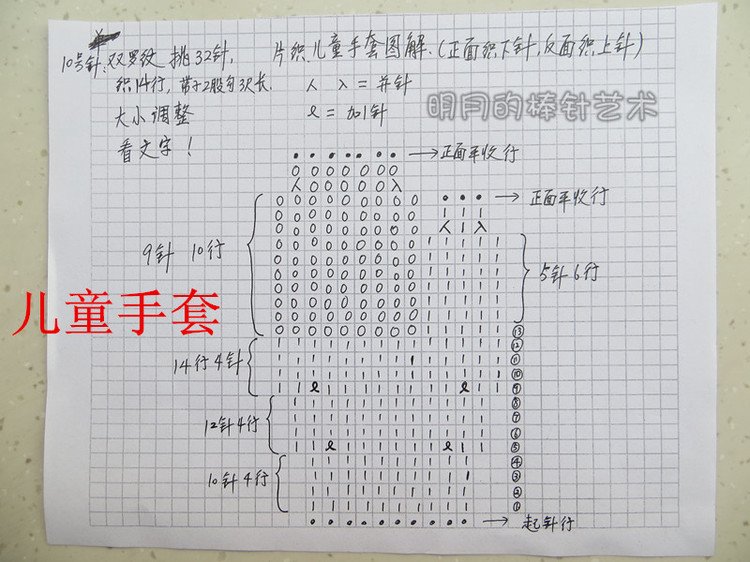 10号针,双罗纹 挑32针, 片织儿童手套图解.(正面织下针,反面织上针)
织14行, 带子2股勾3次长. 人 入 = 并针
大小调整 ℓ = 加1针
明月的棒针艺术
看文字!
正面平收行
正面平收行
9针 10行
5针6行
儿童手套
14行4针
12针4行
10针4行
⑬
⑫
⑪
⑩
⑨
⑧
⑦
⑥
⑤
④
③
②
①
起针行